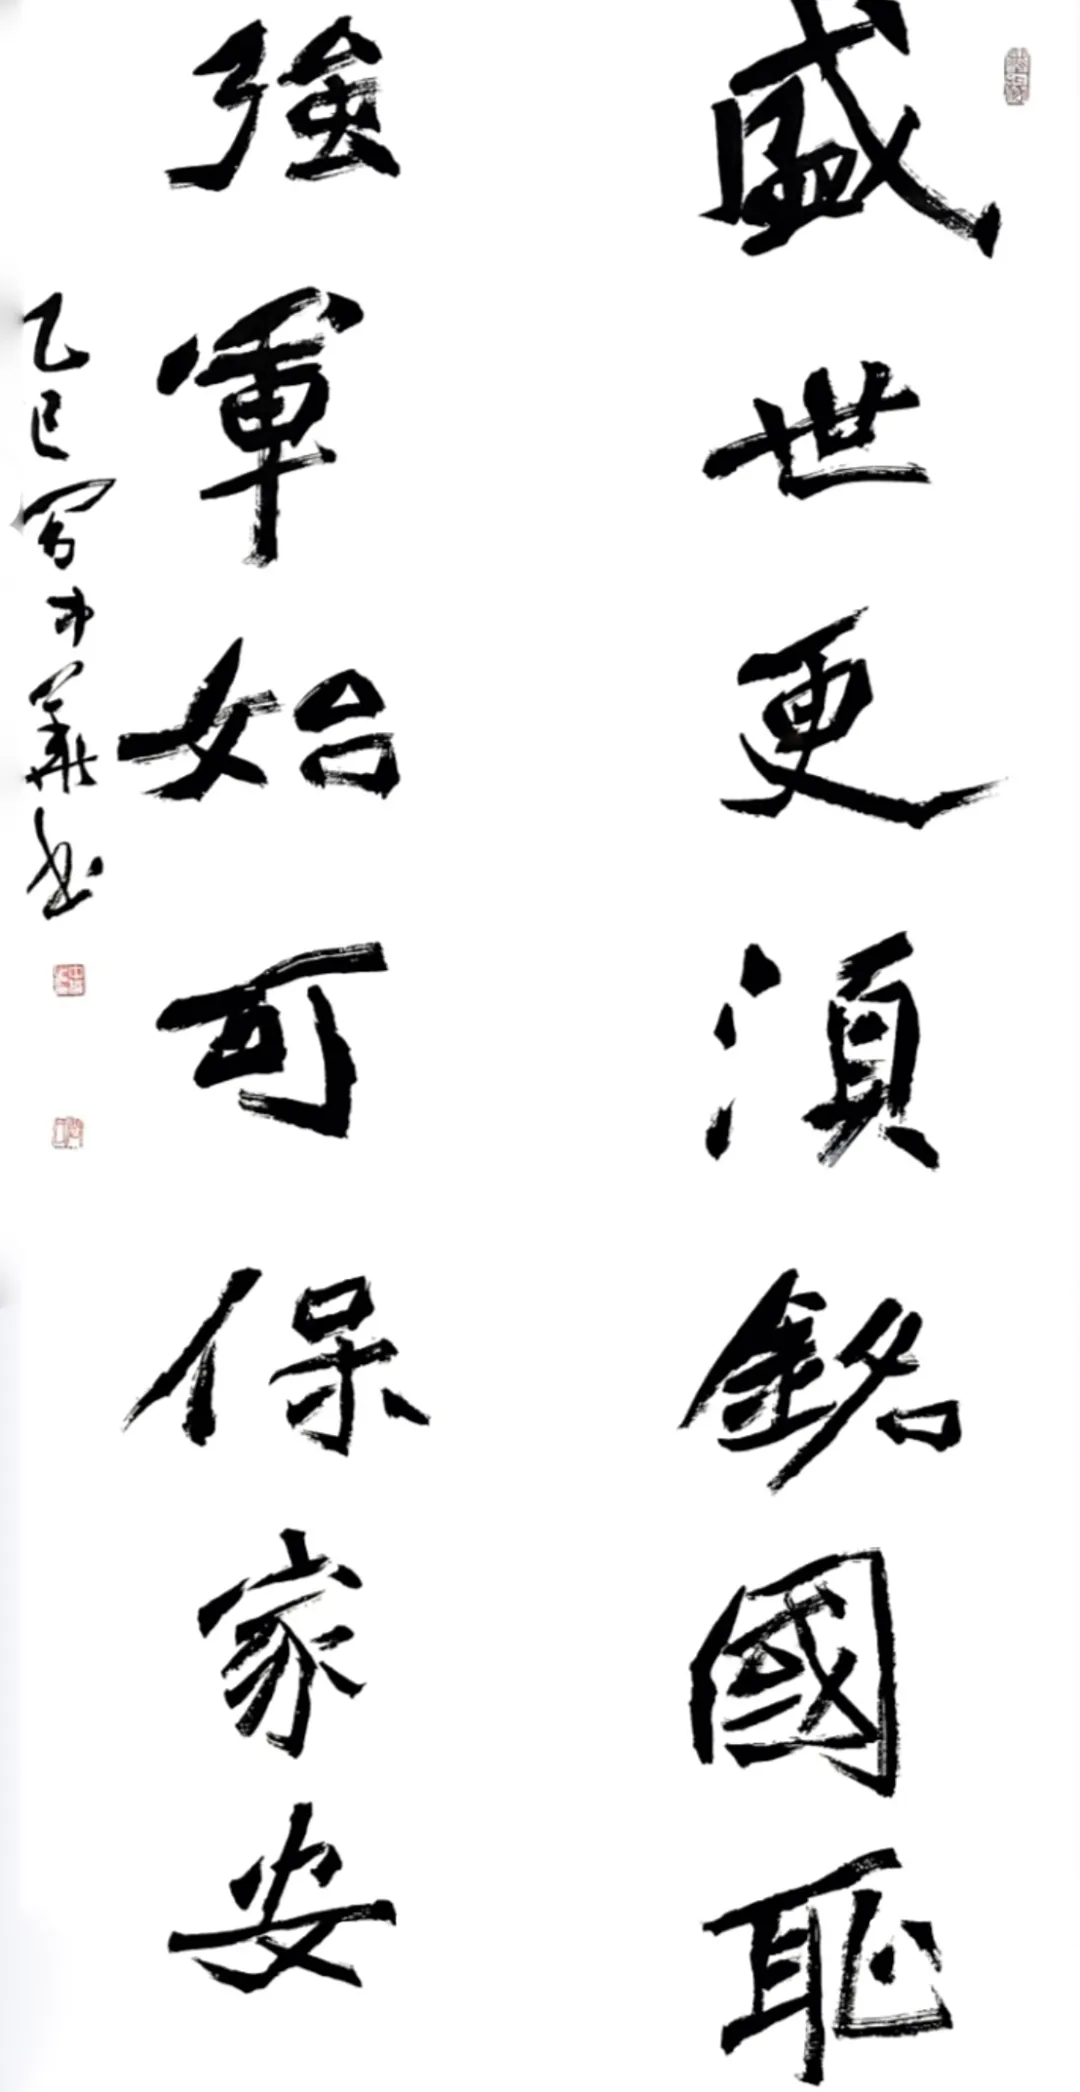 盛世更須銘國恥
強軍始可保家安
乙巳閏中華書